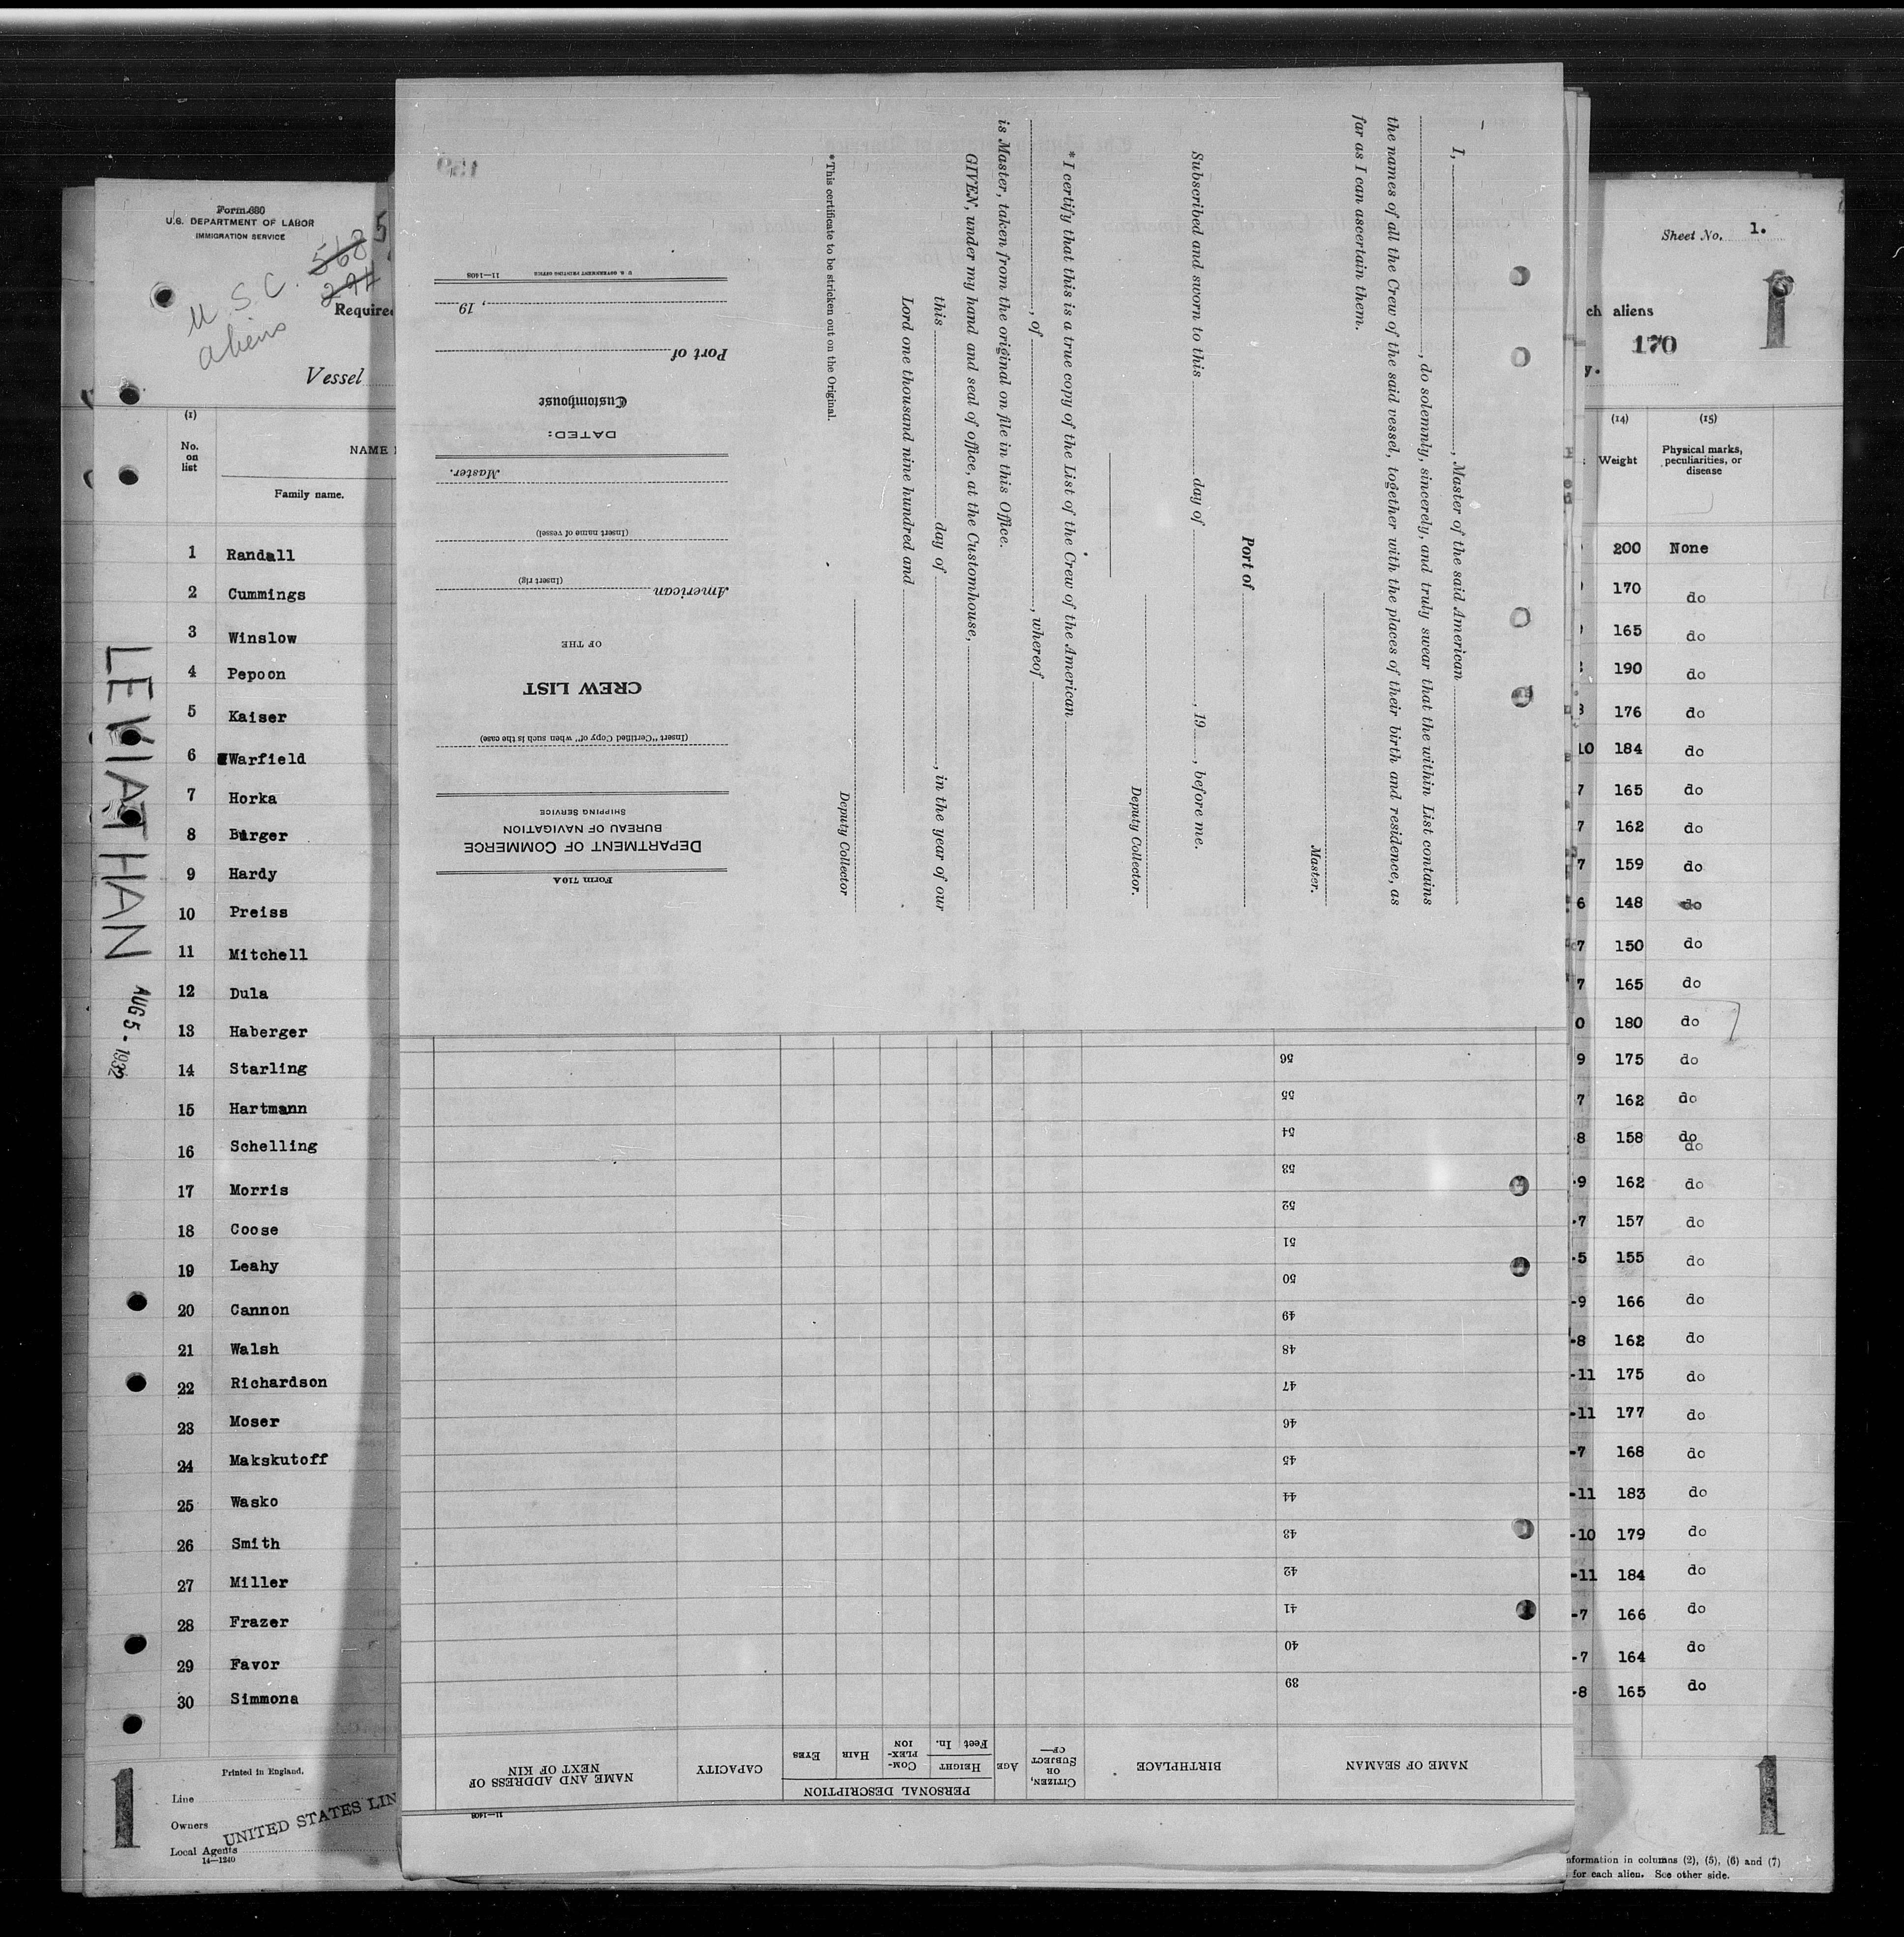 Form 680
U.S. DEPARTMENT OF LABOR
IMMIGRATION SERVICE
568 5
294
U.S.C.
aliens
Required
Vessel
(1)
No. on list
NAME
Family name.
1 Randall
2 Cummings
3 Winslow
4 Pepoon
5 Kaiser
6 Warfield
7 Horka
8 Burger
9 Hardy
10 Preiss
11 Mitchell
12 Dula
13 Haberger
14 Starling
15 Hartmann
16 Schelling
17 Morris
18 Coose
19 Leahy
20 Cannon
21 Walsh
22 Richardson
23 Moser
24 Makskutoff
25 Wasko
26 Smith
27 Miller
28 Frazer
29 Favor
30 Simmona
LEVIATHAN AUG 5 - 1932
Printed in England.
1
Line
Owners
UNITED STATES LIN
Local Agents
14—1240
I, , Master of the said American
, do solemnly, sincerely, and truly swear that the within List contains
the names of all the Crew of the said vessel, together with the places of their birth and residence, as
far as I can ascertain them.
Master.
Port of
Subscribed and sworn to this day of , 19 , before me.
Deputy Collector.
* I certify that this is a true copy of the List of the Crew of the American
, of , whereof
is Master, taken from the original on file in this Office.
GIVEN, under my hand and seal of office, at the Customhouse,
this day of , in the year of our
Lord one thousand nine hundred and
Deputy Collector
*This certificate to be stricken out on the Original.
Form 710A
DEPARTMENT OF COMMERCE
BUREAU OF NAVIGATION
SHIPPING SERVICE
(Insert "Certified Copy of" when such is the case)
CREW LIST
OF THE
American
(Insert rig)
(Insert name of vessel)
Master.
DATED:
Customhouse
Port of
, 19
U. S. GOVERNMENT PRINTING OFFICE 11—1408
11—1408
NAME OF SEAMAN
BIRTHPLACE
CITIZEN, OR SUBJECT OF—
AGE
PERSONAL DESCRIPTION
Height
Feet In.
COMPLEXION
HAIR
EYES
CAPACITY
NAME AND ADDRESS OF NEXT OF KIN
39
40
41
42
43
44
45
46
47
48
49
50
51
52
53
54
55
56
Sheet No. 1.
1
ch aliens
170
y.
(14) (15)
Weight
Physical marks, peculiarities, or disease
200 None
170 do
165 do
190 do
176 do
10 184 do
7 165 do
7 162 do
7 159 do
6 148 do
7 150 do
7 165 do
0 180 do
9 175 do
7 162 do
8 158 do
do
-9 162 do
-7 157 do
-5 155 do
-9 166 do
-8 162 do
-11 175 do
-11 177 do
-7 168 do
-11 183 do
-10 179 do
-11 184 do
-7 166 do
-7 164 do
-8 165 do
1
nformation in columns (2), (5), (6) and (7)
for each alien. See other side.